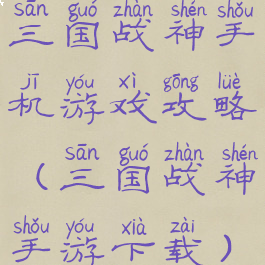 sān guó zhàn shén shǒu
三国战神手
jī yóu xì gōng lüè
机游戏攻略
sān guó zhàn shén
（三国战神
shǒu yóu xià zài
手游下载）